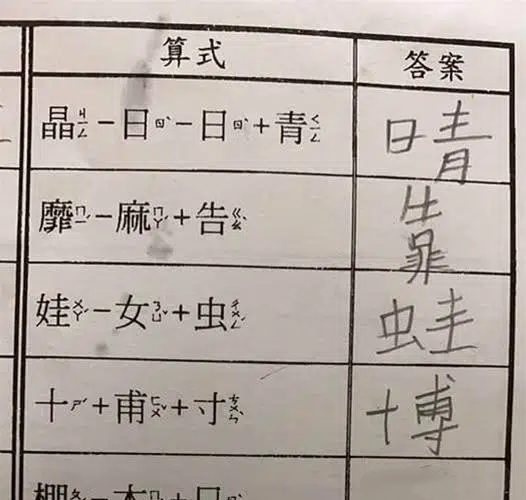 算式 答案
晶ㄐㄧㄥ－日ㄖˋ－日ㄖˋ＋青ㄑㄧㄥ 晴
靡ㄇㄧˊ－麻ㄇㄚˊ＋告ㄍㄠˋ 靠
娃ㄨㄚˊ－女ㄋㄩˇ＋虫ㄔㄨㄥˊ 蛙
十ㄕˊ＋甫ㄈㄨˇ＋寸ㄘㄨㄣˋ 博
棚－木＋